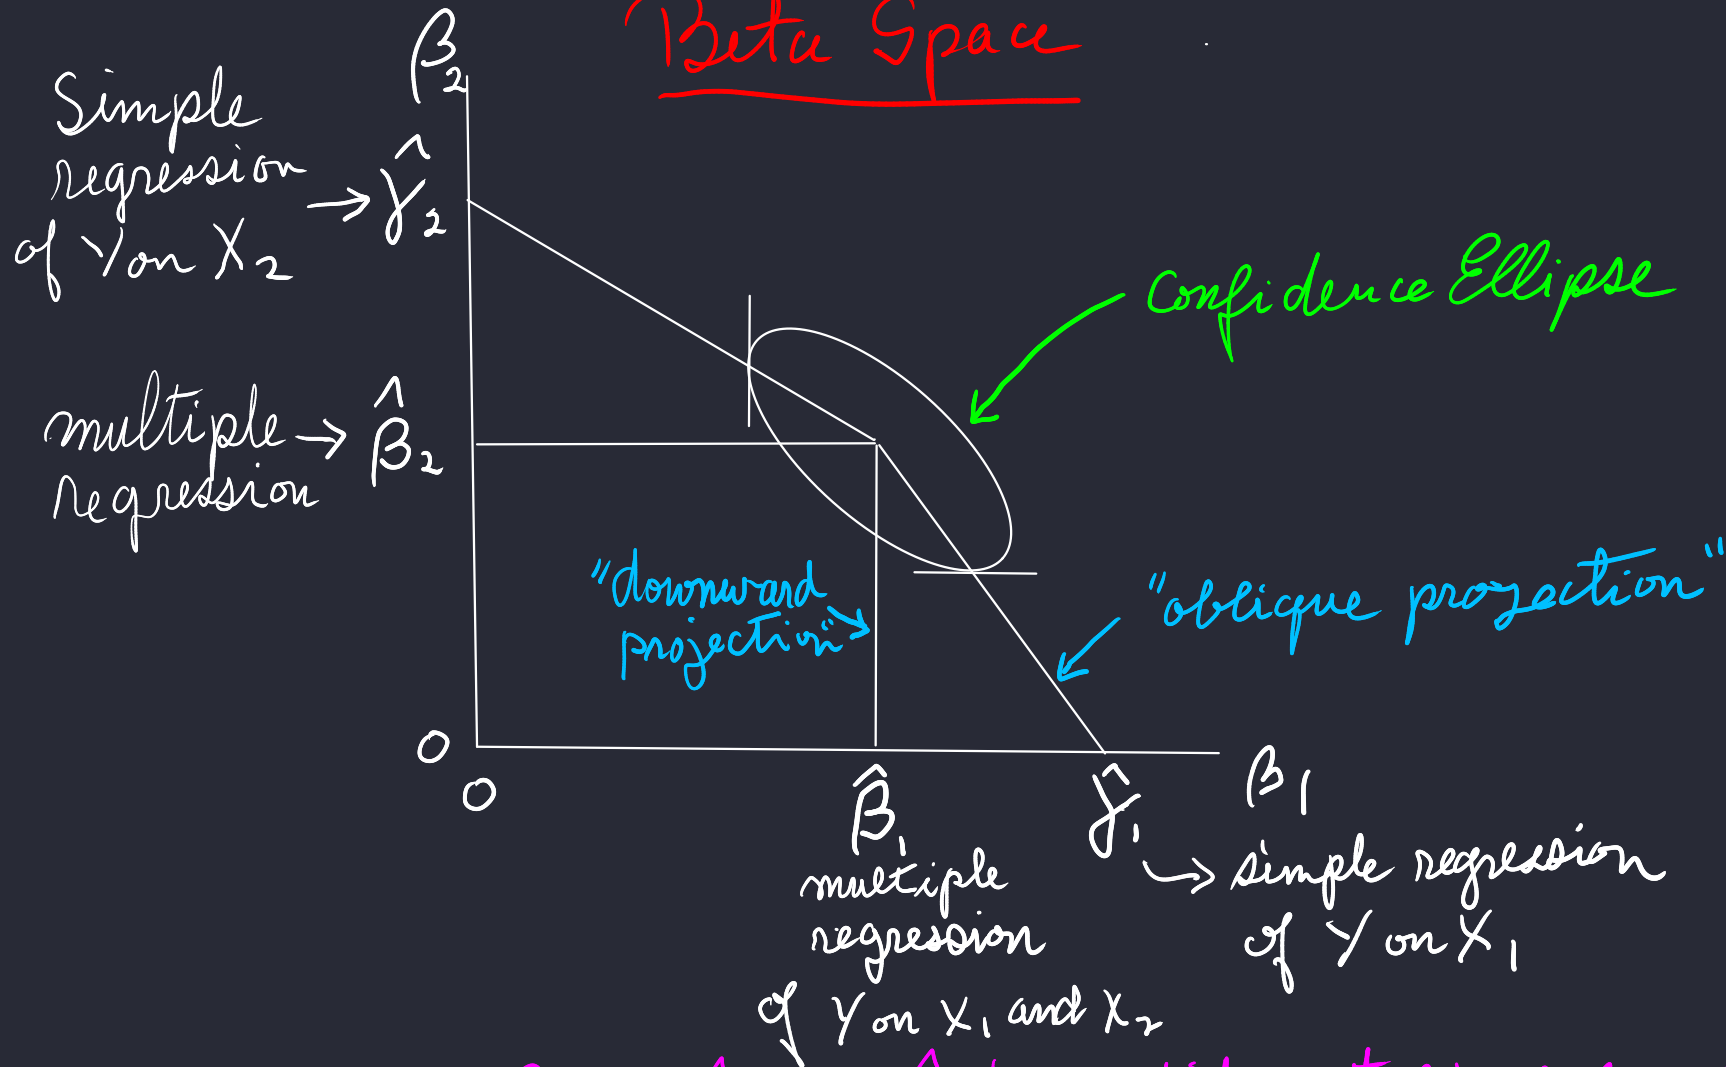 Beta Space
β₂
Simple
regression
of Y on X₂
→ γ̂₂
Confidence Ellipse
multiple
regression
→ β̂₂
"downward
projection"
"oblique projection"
0
0
β̂₁
γ̂₁
β₁
multiple
regression
of Y on X₁ and X₂
→ simple regression
of Y on X₁